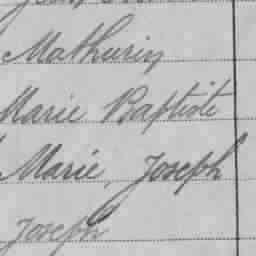 Mathurin
Marie Baptiste
Marie, Joseph
Joseph